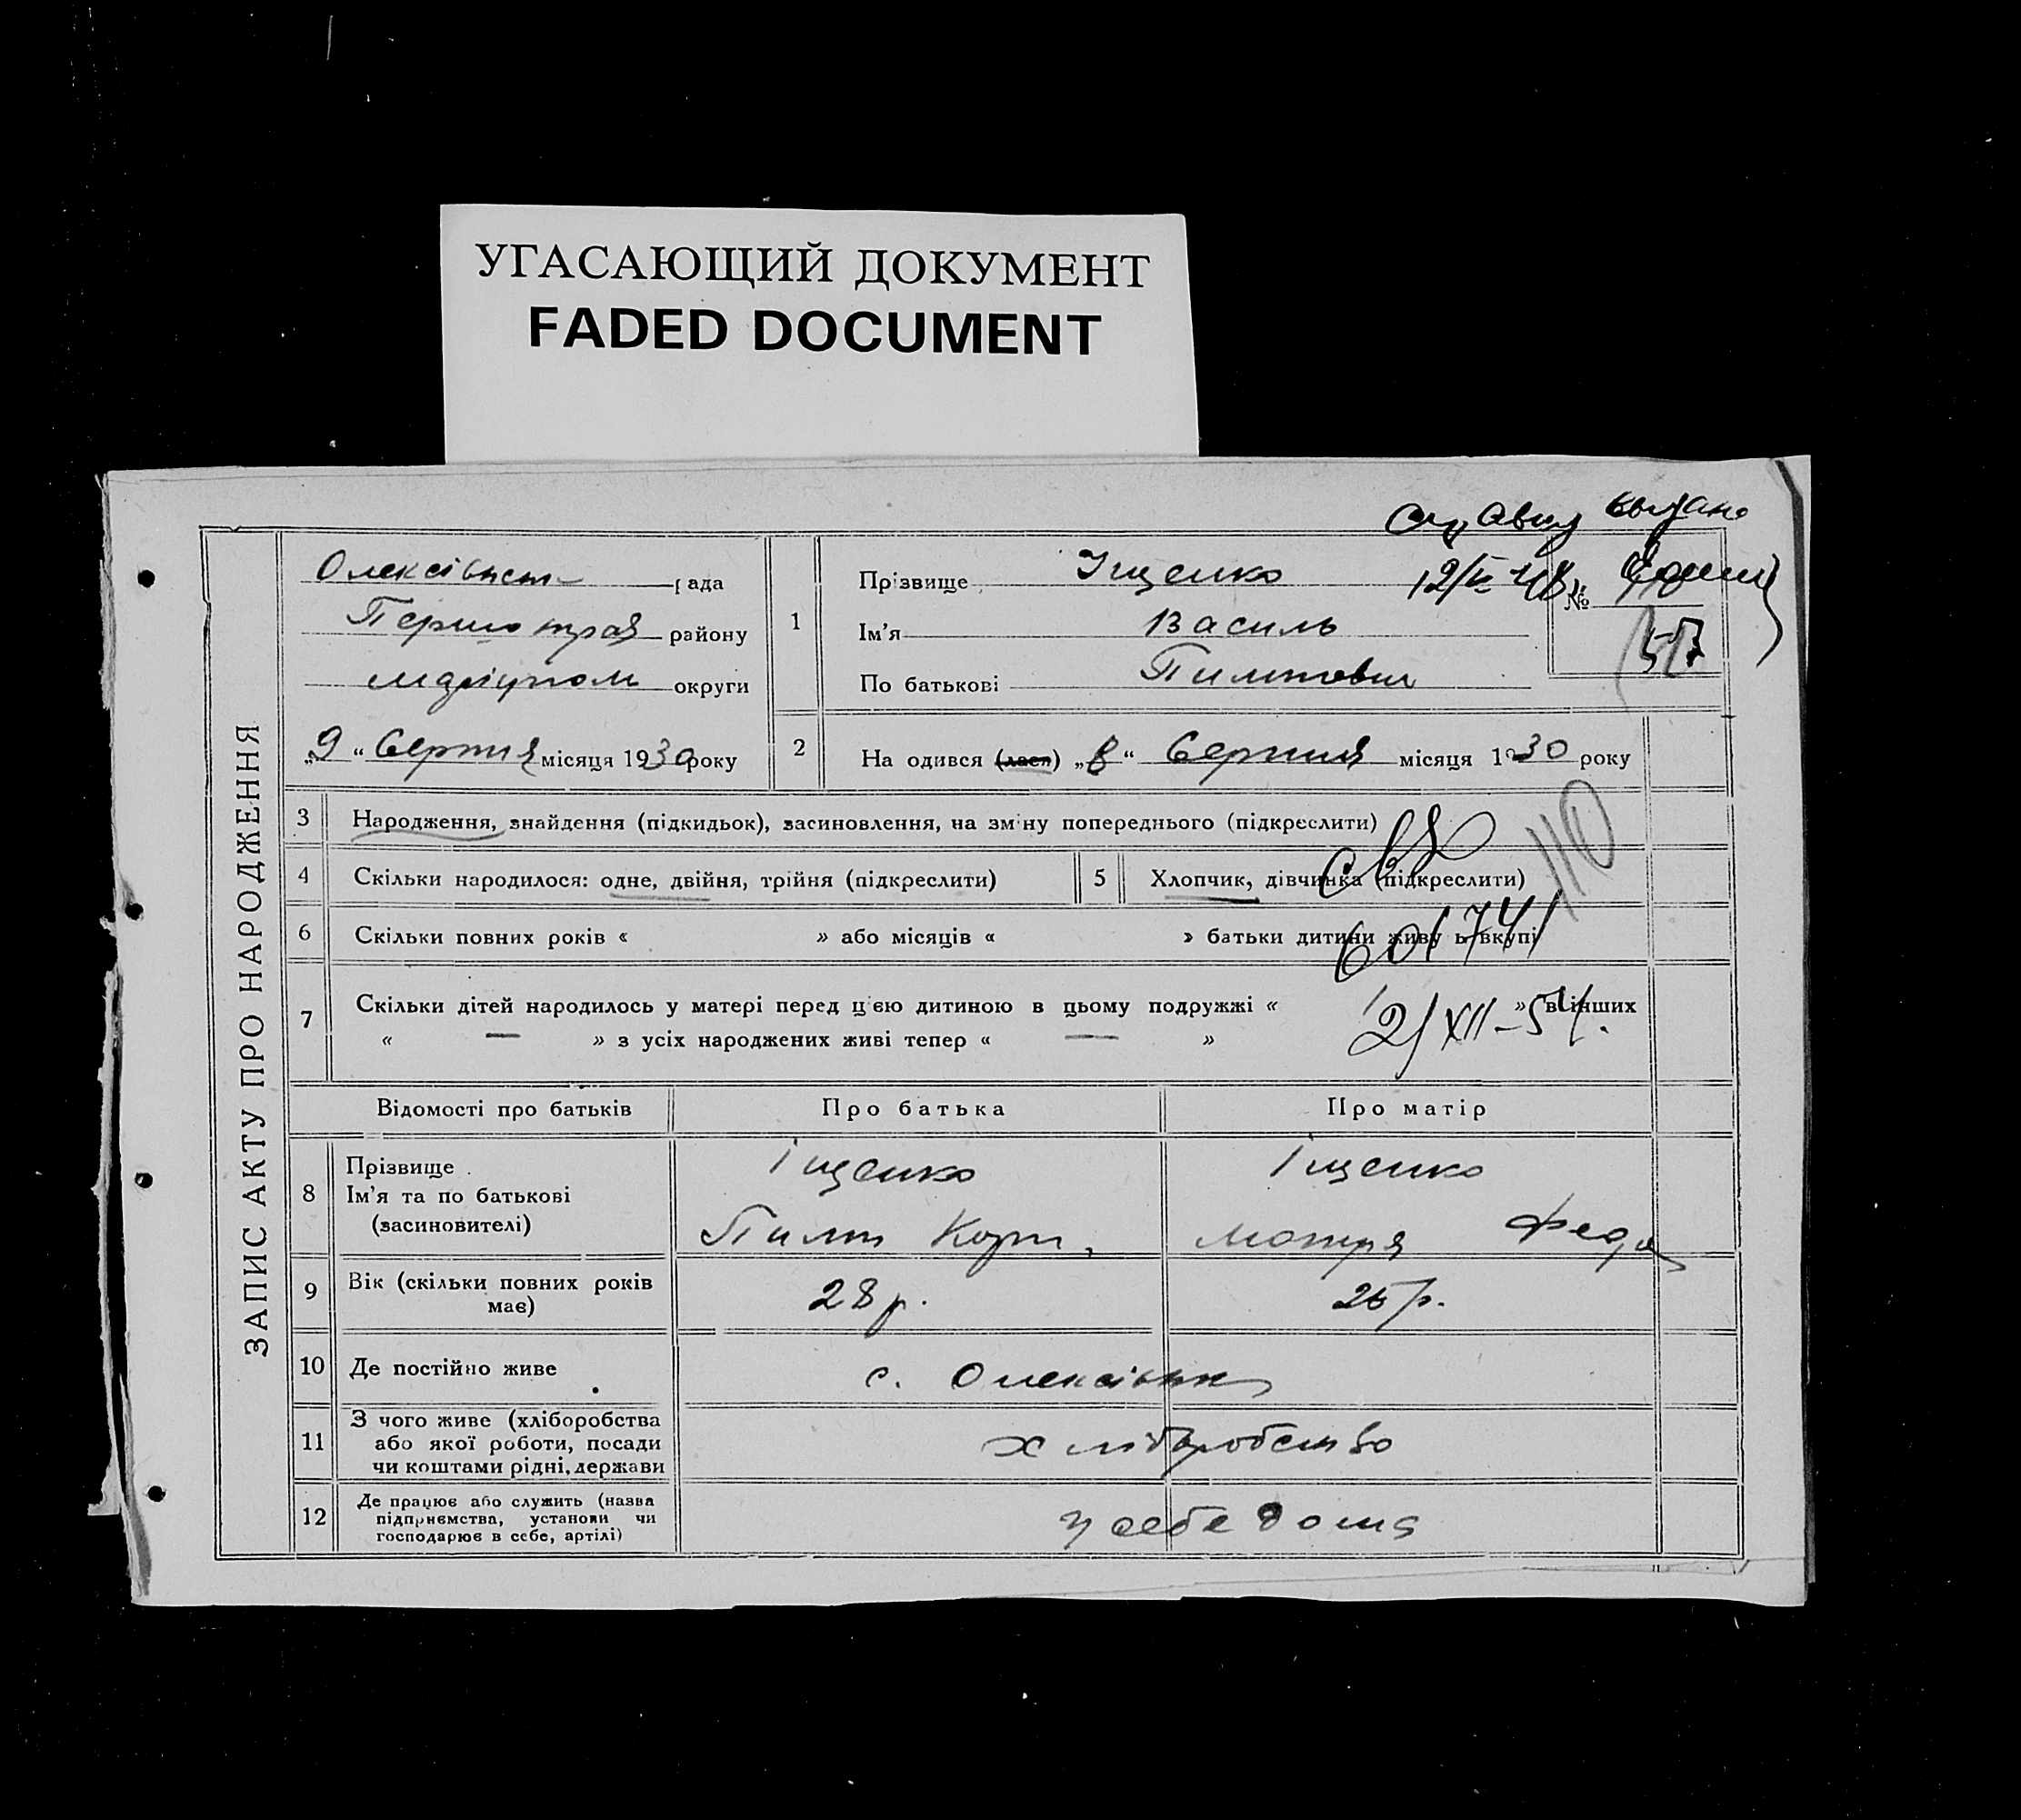 УГАСАЮЩИЙ ДОКУМЕНТ
FADED DOCUMENT
ЗАПИС АКТУ ПРО НАРОДЖЕННЯ
рада
району
округи
„9“ Серпня місяця 1930 року
1
Прізвище Іщенко
Ім'я Василь
По батькові
12/
48
№
57
2
На одився (лася) „8“ Серпня місяця 1930 року
3 Народження, знайдення (підкидьок), засиновлення, на зміну попереднього (підкреслити)
4 Скільки народилося: одне, двійня, трійня (підкреслити) 5 Хлопчик, дівчинка (підкреслити)
110
6 Скільки повних років « » або місяців « » батьки дитини живу ь вкупі
601741
7 Скільки дітей народилось у матері перед цією дитиною в цьому подружжі « » в інших
« — » з усіх народжених живі тепер « — »
2/XII-51.
Відомості про батьків Про батька Про матір
8 Прізвище Іщенко Іщенко
Ім'я та по батькові
(засиновителі) Пилип Мотря
9 Вік (скільки повних років має) 28 р. р.
10 Де постійно живе с. Олексіївка
11 З чого живе (хліборобства
або якої роботи, посади
чи коштами рідні, держави хліборобство
12 Де працює або служить (назва
підприємства, установи чи
господарює в себе, артілі) у себе дома